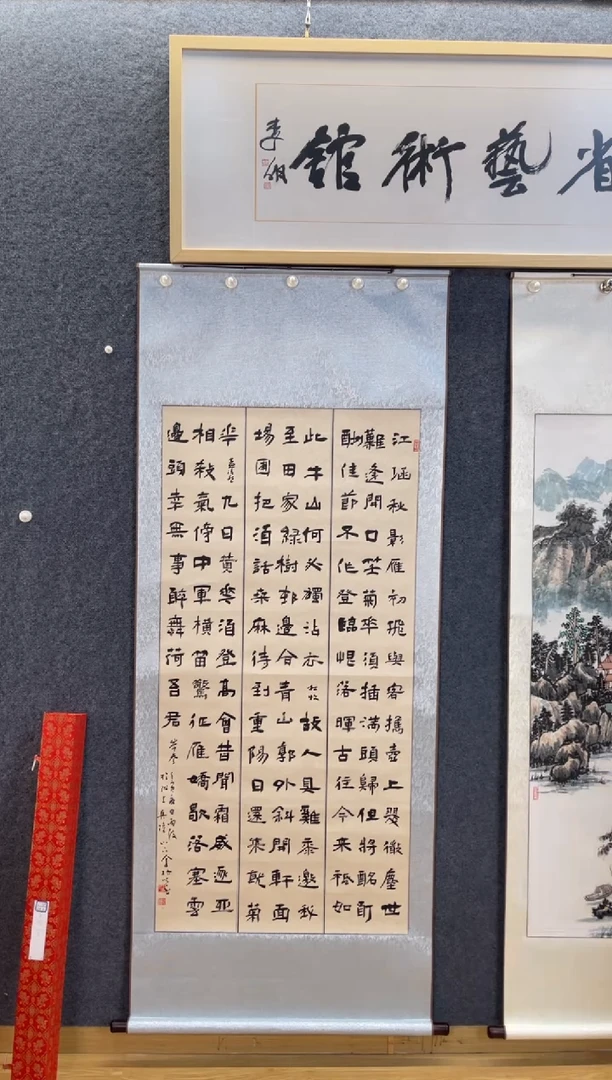 省藝術館
江涵秋影雁初飛與客攜壺上翠微塵世
難逢開口笑菊華須插滿頭歸但將酩酊
酬佳節不作登臨恨落暉古往今來祗如
此牛山何必獨沾衣 杜牧 故人具雞黍邀我
至田家綠樹邨邊合青山郭外斜開軒面
場圃把酒話桑麻待到重陽日還來就菊
華 孟浩然 九日黃華酒登高會昔聞霜威逐亞
相殺氣傍中軍橫笛驚征雁嬌歌落塞雲
邊頭幸無事醉舞荷吾君 岑參